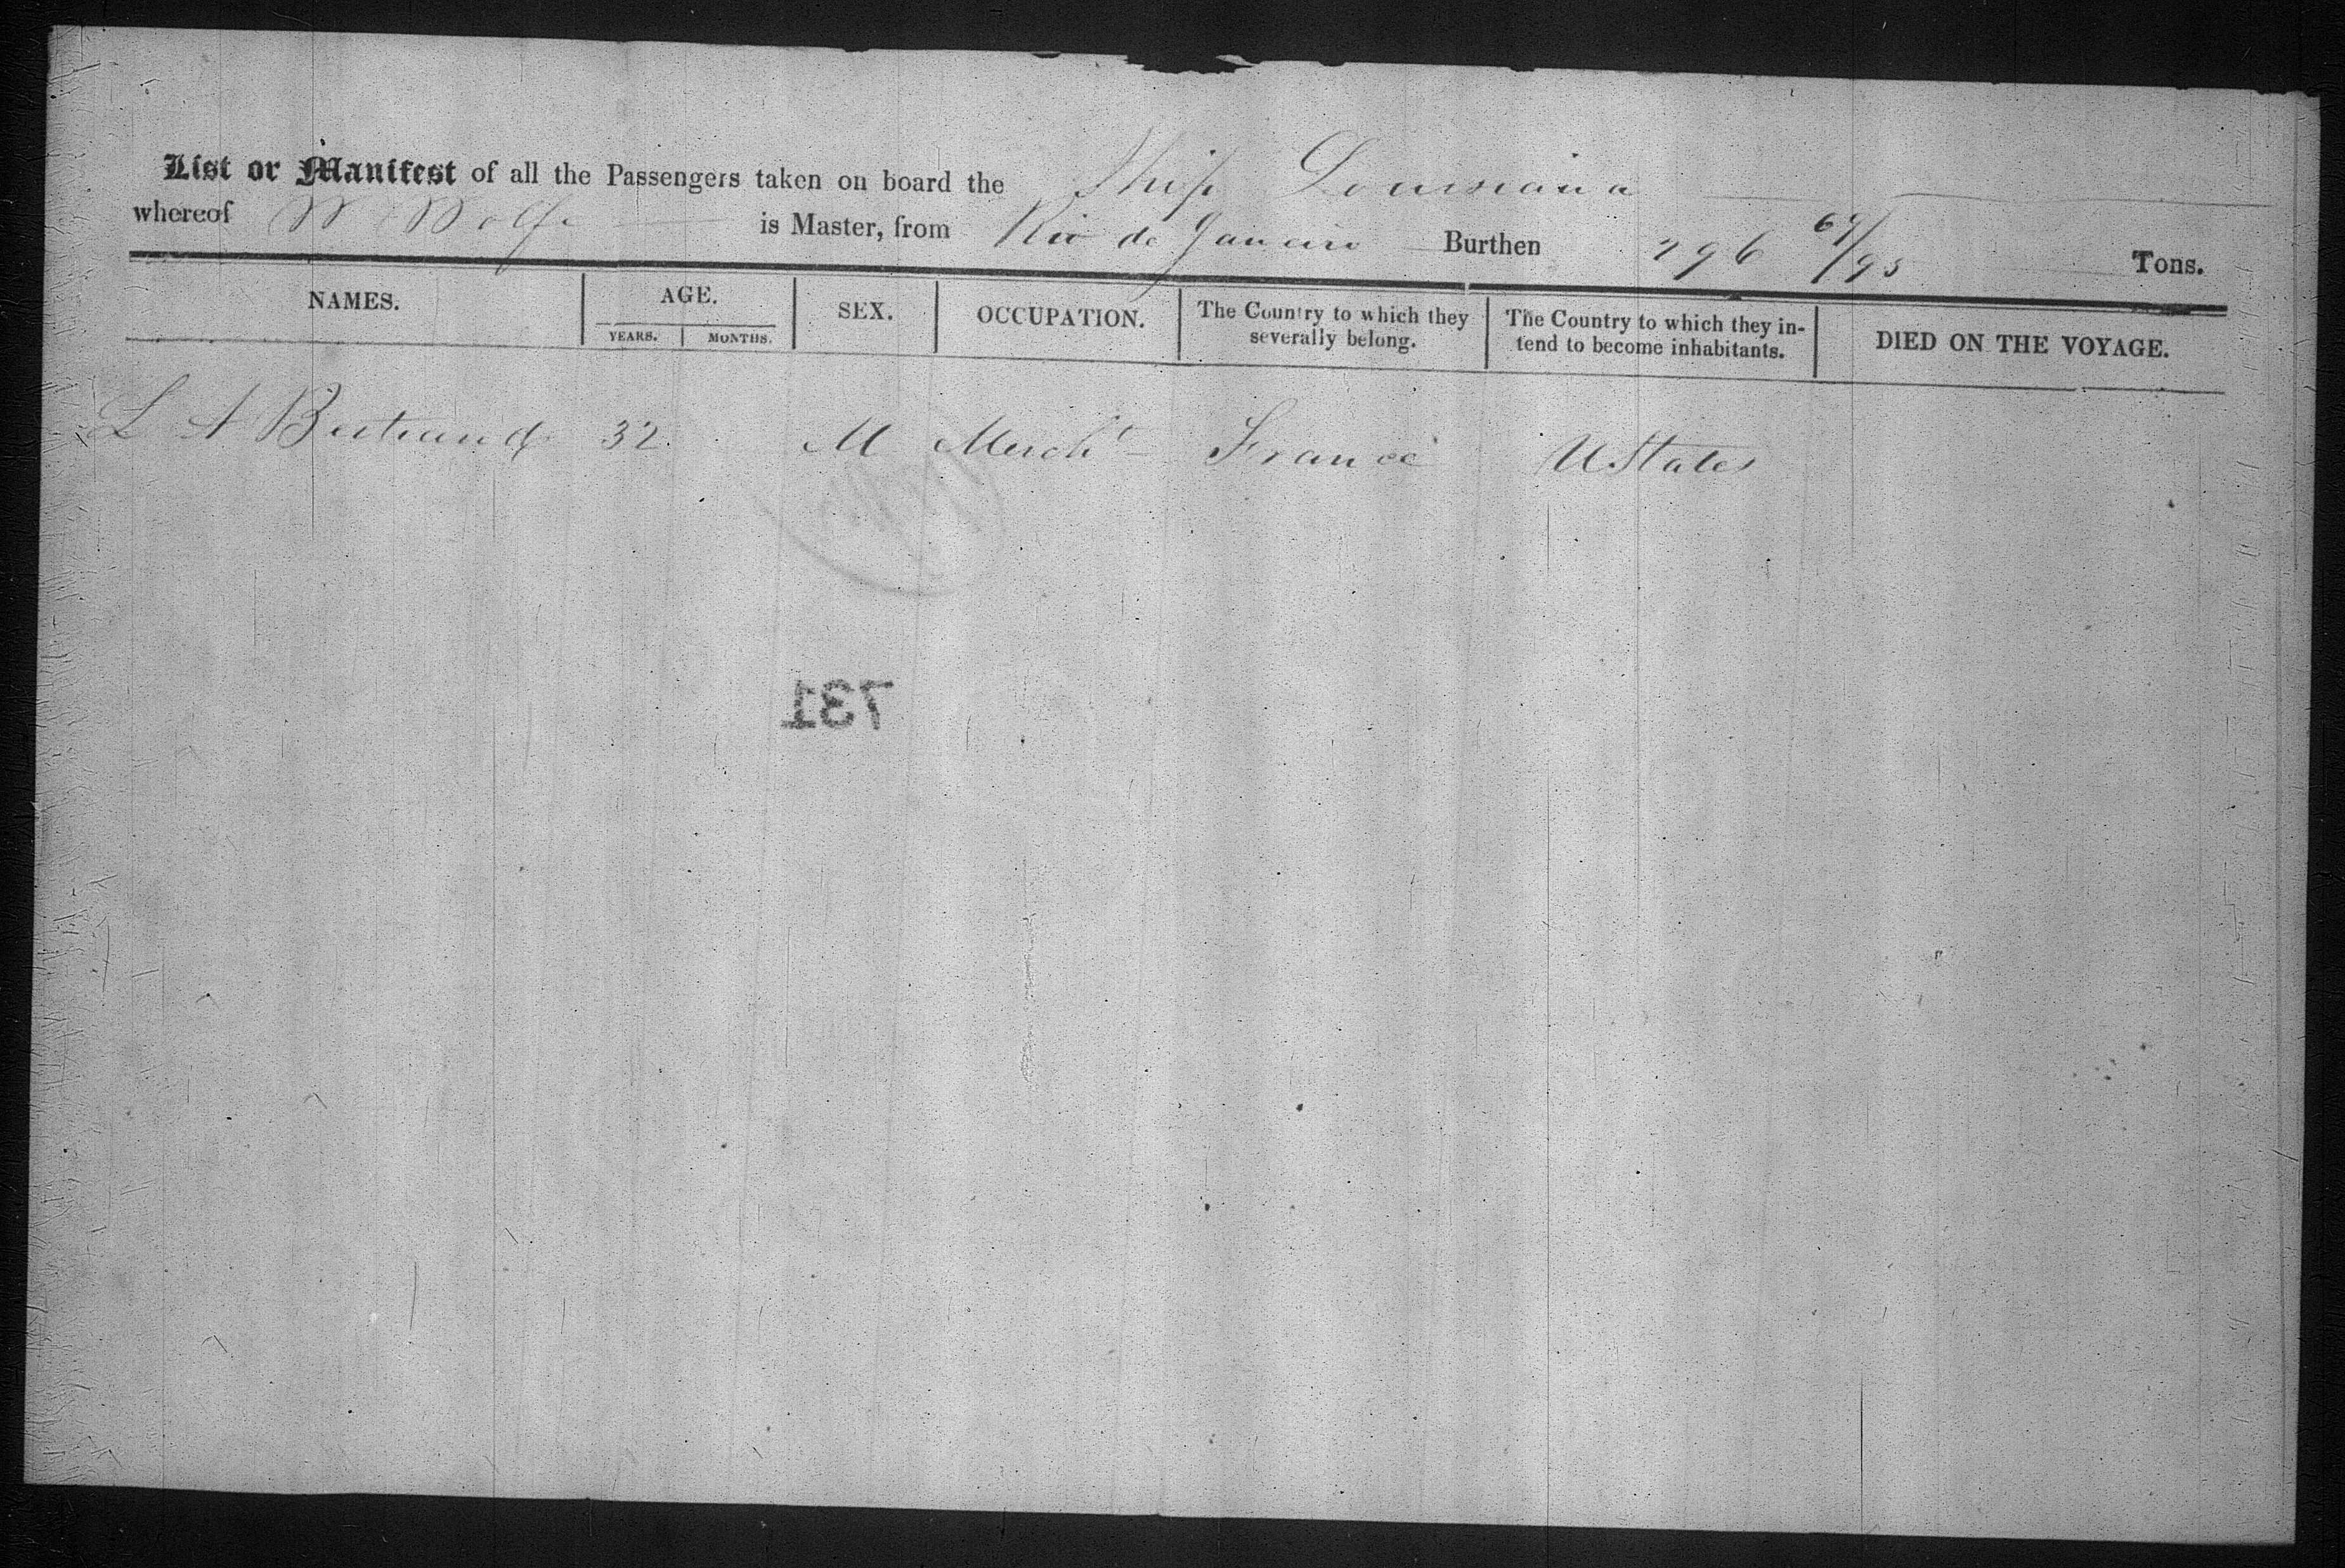 List or Manifest of all the Passengers taken on board the Ship Louisiana
whereof W Wolfe is Master, from Rio de Janeiro Burthen 296 64/95 Tons.
NAMES. AGE. SEX. OCCUPATION. The Country to which they severally belong. The Country to which they in-tend to become inhabitants. DIED ON THE VOYAGE.
YEARS. MONTHS.
L A Bertrand 32 M Mercht France UStates
731